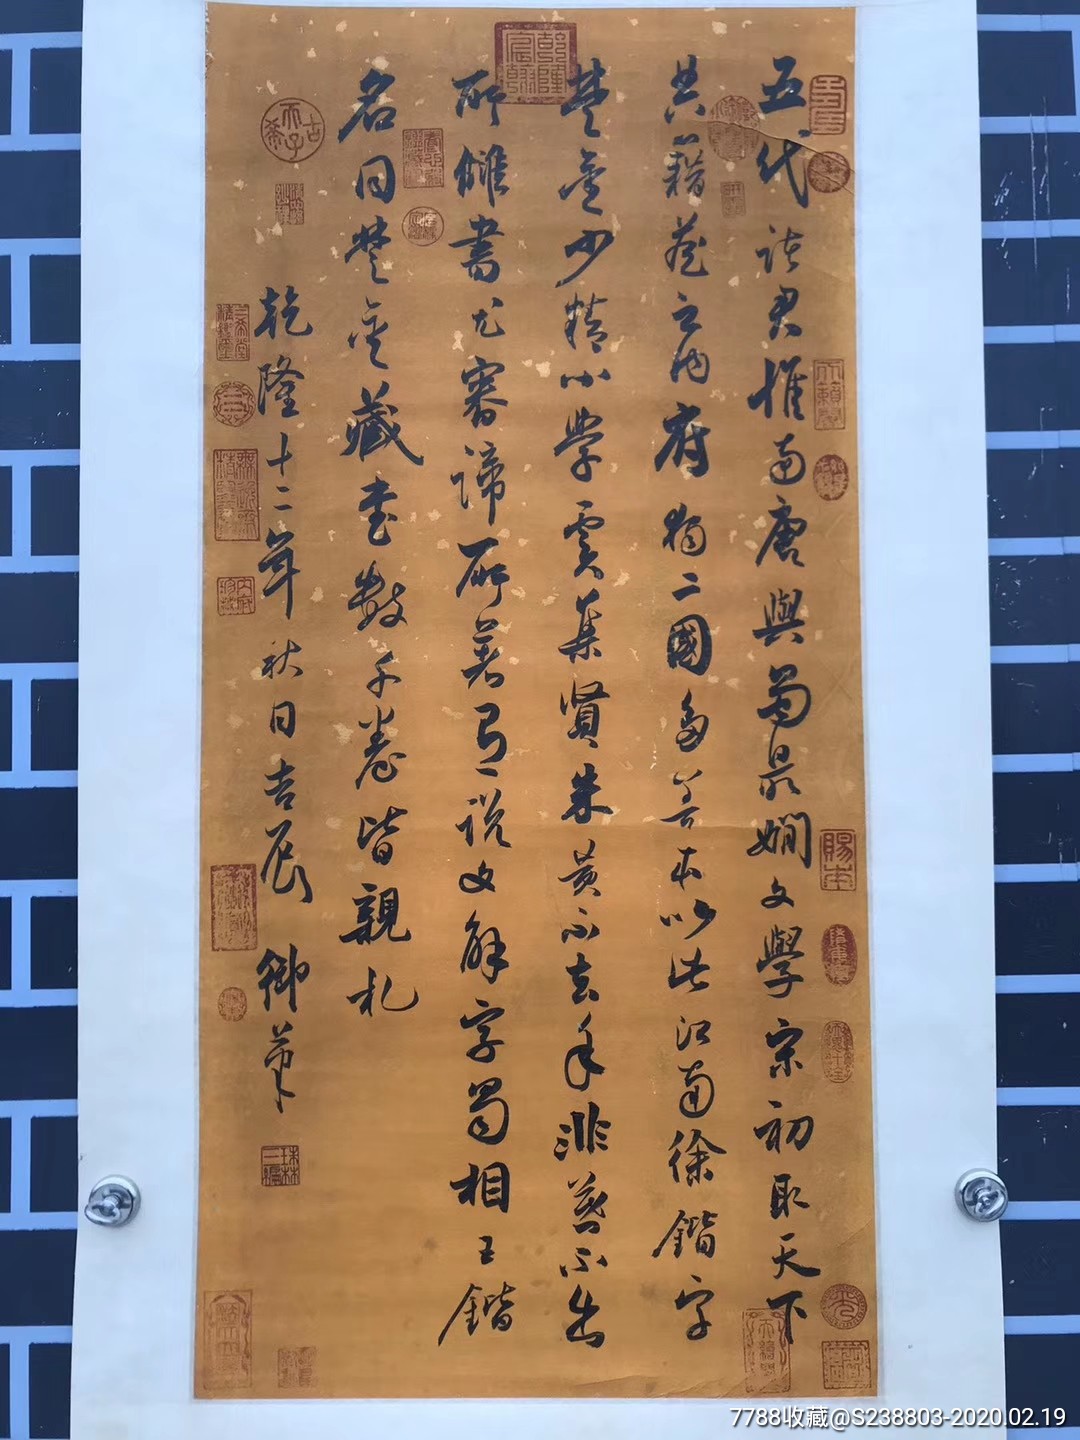 五代諸君惟南唐與蜀最嫻文學宋初取天下
典籍藏之內府獨二國多善本以此江南徐鍇字
楚金少精小學處集賢朱黃不去手非暮不出
所讎書尤審諦所著有說文解字蜀相王鍇
名同楚金藏書數千卷皆親札
乾隆十二年秋日吉辰 御筆
乾隆宸翰
古希天子
7788收藏@S238803-2020.02.19